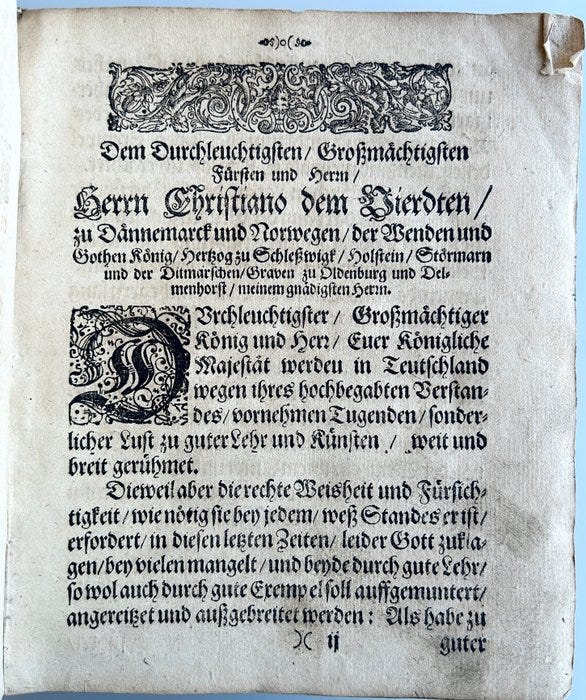 Dem Durchleuchtigsten/ Großmächtigsten
Fürsten und Herrn/
Herrn Christiano dem Vierdten/
zu Dännemarck und Norwegen/ der Wenden und
Gothen König/ Hertzog zu Schleßwigk/ Holstein/ Störmarn
und der Ditmärschen/ Graven zu Oldenburg und Del-
menhorst/ meinem gnädigsten Herrn.
DUrchleuchtigster/ Großmächtiger
König und Herr/ Euer Königliche
Majestät werden in Teutschland
wegen ihres hochbegabten Verstan-
des/ vornehmen Tugenden/ sonder-
licher Lust zu guter Lehr und Künsten/ weit und
breit gerühmet.
Dieweil aber die rechte Weisheit und Fürsich-
tigkeit/ wie nötig sie bey jedem/ weß Standes er ist/
erfordert/ in diesen letzten Zeiten/ leider Gott zu kla-
gen/ bey vielen mangelt/ und beyde durch gute Lehr/
so wol auch durch gute Exempel soll auffgemuntert/
angereitzet und außgebreitet werden: Als habe zu
)( ij guter